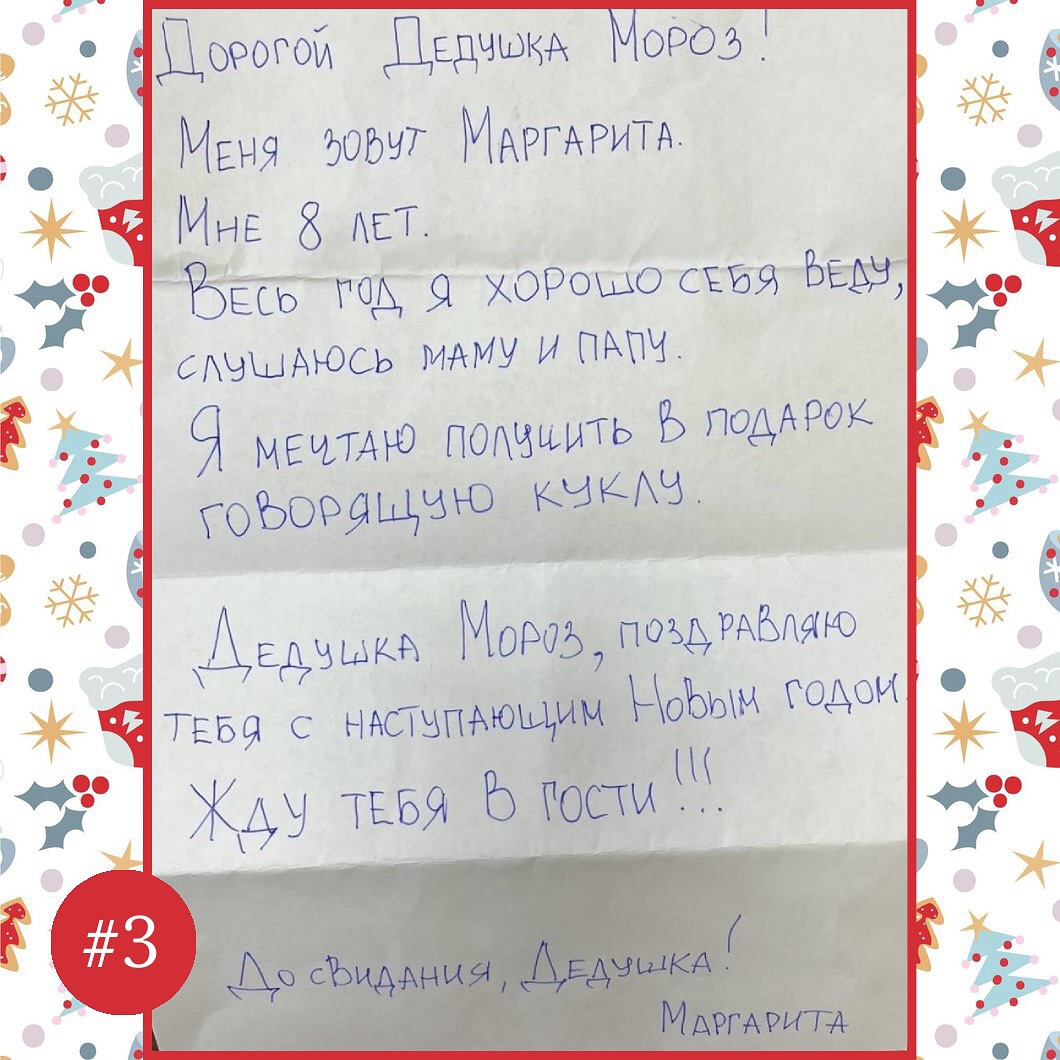 Дорогой Дедушка Мороз!
Меня зовут Маргарита.
Мне 8 лет.
Весь год я хорошо себя веду,
слушаюсь маму и папу.
Я мечтаю получить в подарок
говорящую куклу.
Дедушка Мороз, поздравляю
тебя с наступающим Новым годом.
Жду тебя в гости!!!
До свидания, Дедушка!
Маргарита
#3